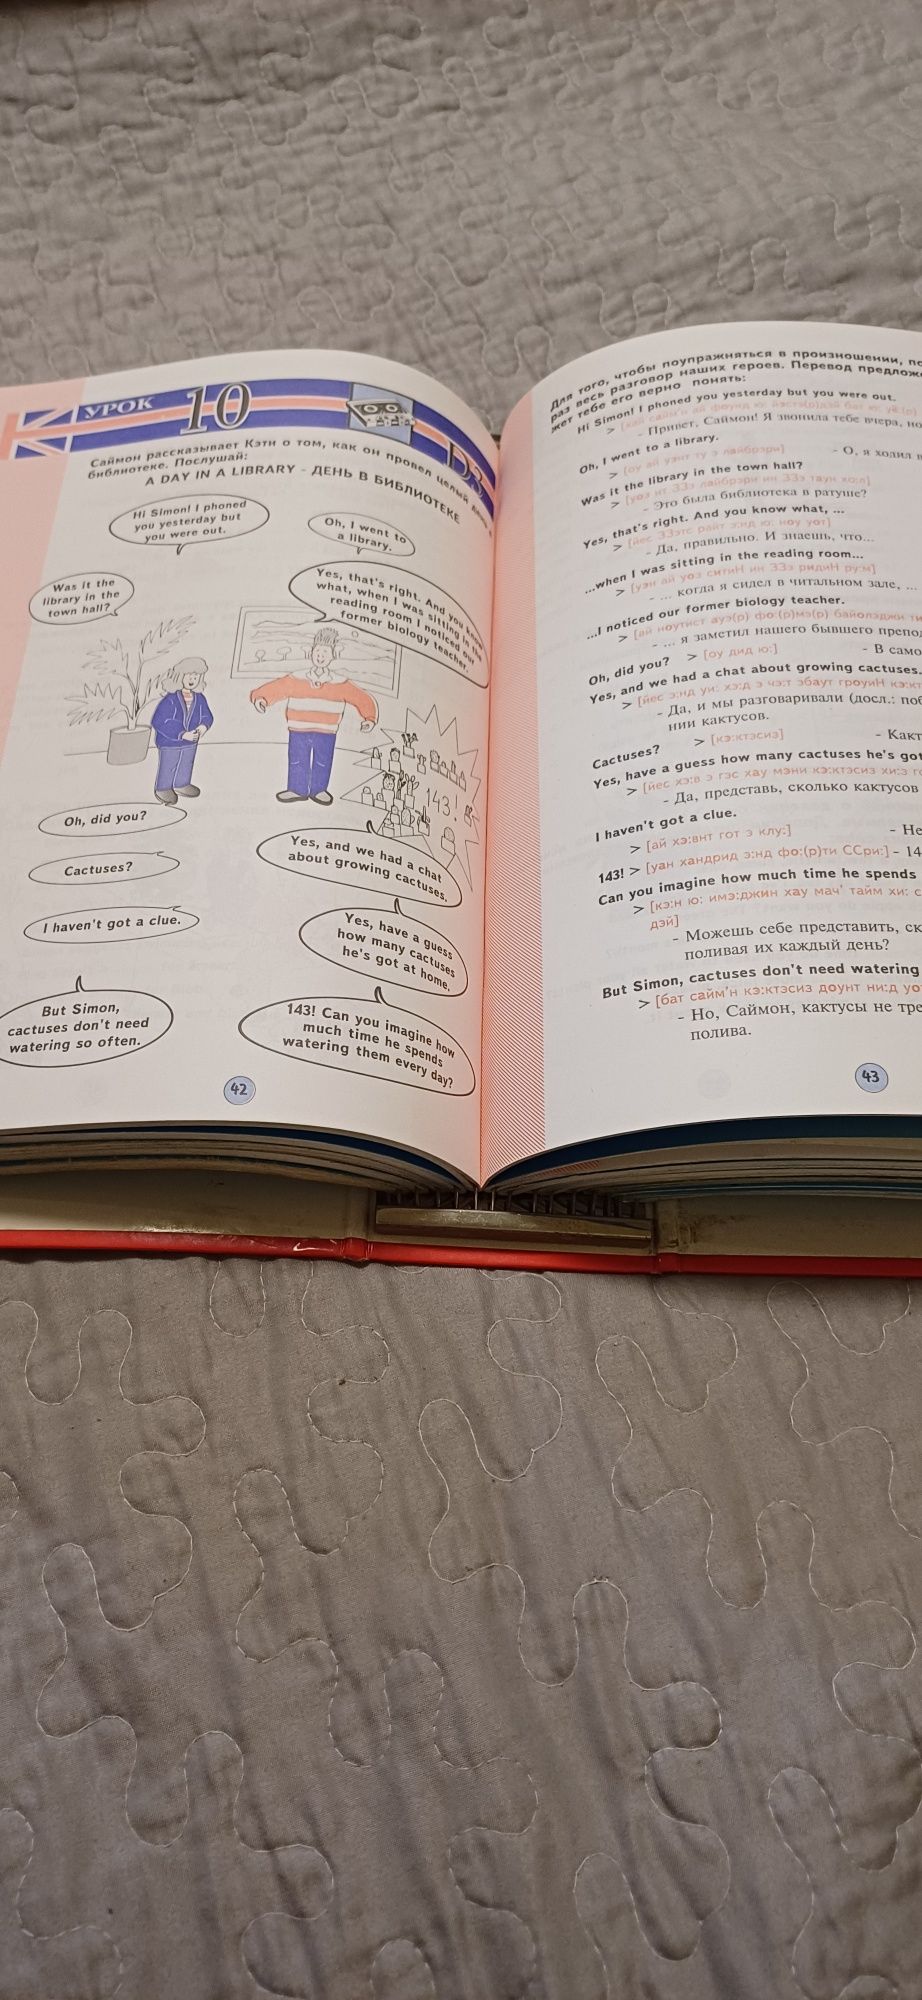 УРОК 10
D3
Саймон рассказывает Кэти о том, как он провел целый день в
библиотеке. Послушай:
A DAY IN A LIBRARY - ДЕНЬ В БИБЛИОТЕКЕ
Hi Simon! I phoned
you yesterday but
you were out.
Oh, I went to
a library.
Was it the
library in the
town hall?
Yes, that's right. And you know
what, when I was sitting in the
reading room I noticed our
former biology teacher.
143!
Oh, did you?
Yes, and we had a chat
about growing cactuses.
Cactuses?
Yes, have a guess
how many cactuses
he's got at home.
I haven't got a clue.
143! Can you imagine how
much time he spends
watering them every day?
But Simon,
cactuses don't need
watering so often.
42
Для того, чтобы поупражняться в произношении,
раз весь разговор наших героев. Перевод
жет тебе его верно понять:
Hi Simon! I phoned you yesterday but you were out.
- Привет, Саймон! Я звонила тебе вчера,
Oh, I went to a library.
> [оу ай уэнт ту э лайбрэри] - О, я ходил
Was it the library in the town hall?
> [уоз ит ЗЗэ лайбрэри ин ЗЗэ таун хо:л]
- Это была библиотека в ратуше?
Yes, that's right. And you know what, ...
> [йес ЗЗэтс райт э:нд ю: ноу уот]
- Да, правильно. И знаешь, что...
...when I was sitting in the reading room...
> [уэн ай уоз ситиН ин ЗЗэ ридиН ру:м]
- ... когда я сидел в читальном зале, ...
...I noticed our former biology teacher.
> [ай ноутист ауэ(р) фо:(р)мэ(р) байолэджи
- ... я заметил нашего бывшего
Oh, did you? > [оу дид ю:] - В
Yes, and we had a chat about growing cactuses.
> [йес э:нд уи: хэ:д э чэ:т эбаут гроуиН
- Да, и мы разговаривали (досл.:
нии кактусов.
Cactuses? > [кэ:ктэсиз] -
Yes, have a guess how many cactuses he's got
> [йес хэ:в э гэс хау мэни кэ:ктэсиз хи:з
- Да, представь, сколько кактусов
I haven't got a clue.
> [ай хэ:внт гот э клу:] -
143! > [уан хандрид э:нд фо:(р)ти ССри:] -
Can you imagine how much time he spends
> [кэ:н ю: имэ:джин хау мач' тайм хи:
дэй]
- Можешь себе представить,
поливая их каждый день?
But Simon, cactuses don't need watering
> [бат сайм'н кэ:ктэсиз доунт ни:д
- Но, Саймон, кактусы не
полива.
43